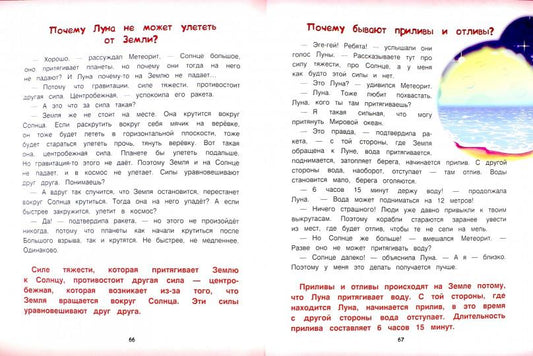 Почему Луна не может улететь
от Земли?
— Хорошо, — рассуждал Метеорит. — Солнце большое,
оно притягивает планеты, но почему они тогда на него
не падают? И Луна почему-то на Землю не падает...
— Потому что гравитации, силе тяжести, противостоит
другая сила. Центробежная, — успокоила его ракета.
— А это что за сила такая?
— Земля же не стоит на месте. Она крутится вокруг
Солнца. Если раскрутить вокруг себя мячик на верёвке,
он тоже будет лететь в горизонтальной плоскости, тоже
будет стараться улететь прочь, тянуть верёвку. Вот такая
она, центробежная сила. Планеты бы улетели подальше.
Но гравитация-то этого не даёт. Поэтому Земля и на Солнце
не падает, и в космос не улетает. Силы уравновешивают
друг друга. Понимаешь?
— А вдруг так случится, что Земля остановится, перестанет
вокруг Солнца крутиться. Тогда она на него упадёт? А если
быстрее закружится, улетит в космос?
— Да! — подтвердила ракета, — но этого не произойдёт
никогда, потому что планеты как начали крутиться после
Большого взрыва, так и крутятся. Не быстрее, не медленнее.
Одинаково.
Силе тяжести, которая притягивает Землю
к Солнцу, противостоит другая сила — центро-
бежная, которая возникает из-за того, что
Земля вращается вокруг Солнца. Эти силы
уравновешивают друг друга.
66
Почему бывают приливы и отливы?
— Эге-гей! Ребята! — услышали они
голос Луны. — Рассказываете тут про
силу тяжести, про Солнце, а у меня
как будто этой силы и нет.
— Это Луна? — удивился Метеорит.
— Луна. Тоже любит похвастать.
Луна, кого ты там притягиваешь?
— Я такая сильная, что могу
притянуть Мировой океан.
— Это правда, — подтвердила ра-
кета, — с той стороны, где Земля
обращена к Луне, вода притягивается,
поднимается, затопляет берега, начинается прилив. С другой
стороны вода, наоборот, отступает — там отлив. Воды
становится мало, берега оголяются.
— 6 часов 15 минут держу воду! — продолжала
Луна. — Вода может подниматься на 12 метров!
— Ничего страшного! Люди уже давно привыкли к твоим
выкрутасам. Поэтому корабли стараются заранее увести
из мест, где будет отлив, чтобы те не сели на мель.
— Но Солнце же больше! — вмешался Метеорит. —
Разве оно не может притягивать воду?
— Солнце далеко! — объяснила Луна. — А я — близко.
Поэтому у меня это делать получается лучше.
Приливы и отливы происходят на Земле потому,
что Луна притягивает воду. С той стороны, где
находится Луна, начинается прилив, в это время
с другой стороны вода отступает. Длительность
прилива составляет 6 часов 15 минут.
67